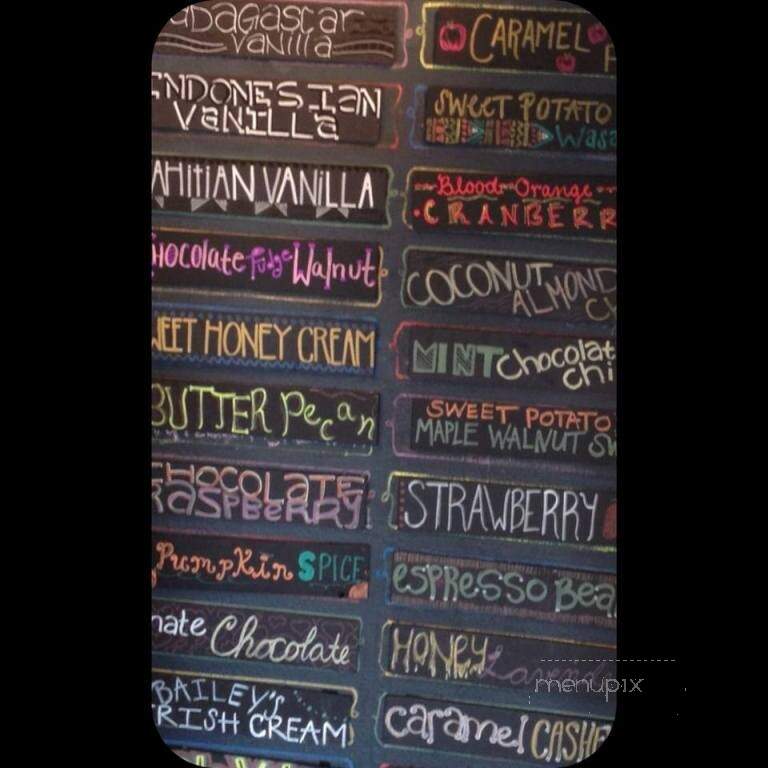 Madagascar
Vanilla
INDONESIAN
VANILLA
TAHITIAN VANILLA
Chocolate Fudge Walnut
SWEET HONEY CREAM
BUTTER Pecan
CHOCOLATE
RASPBERRY
Pumpkin SPICE
Chocolate
BAILEY'S
IRISH CREAM
CARAMEL
SWEET POTATO
Blood Orange
CRANBERR
COCONUT
ALMOND
MINT Chocolat
chi
SWEET POTATO
MAPLE WALNUT SW
STRAWBERRY
ESPRESSO Bea
HONEY Lavend
Caramel CASHE
menupix